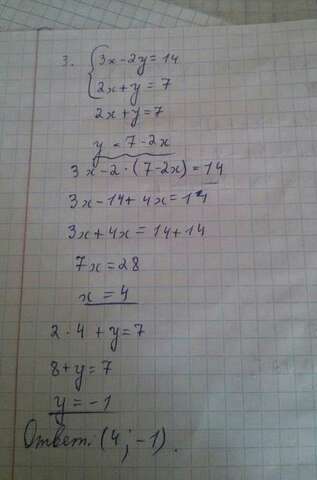 3. { 3x-2y=14
2x+y=7
2x+y=7
y=7-2x
3x-2·(7-2x)=14
3x-14+4x=14
3x+4x=14+14
7x=28
x=4
2·4+y=7
8+y=7
y=-1
Ответ: (4; -1).